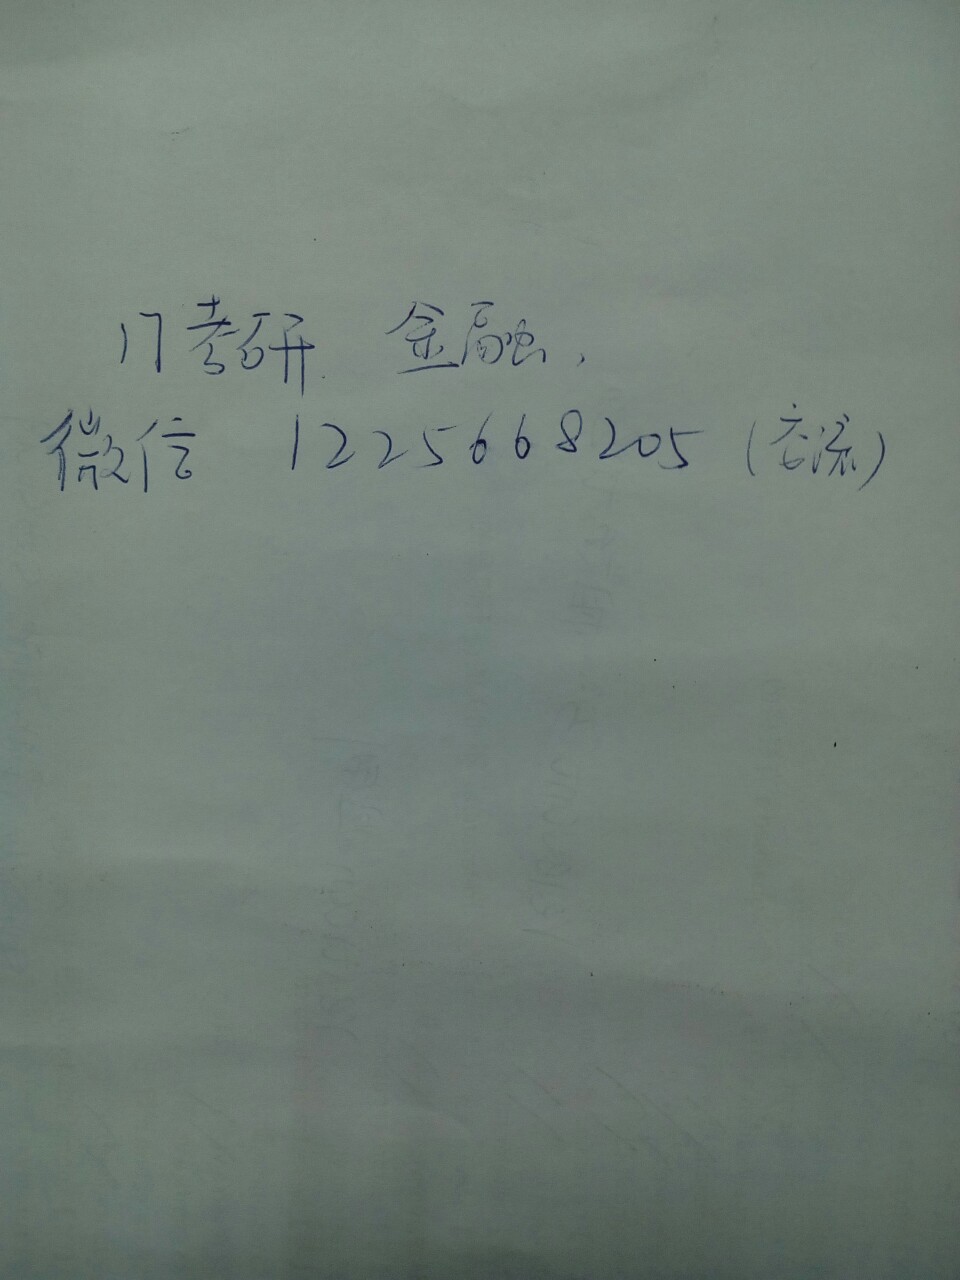 17考研 金融,
微信 1225668205 (交流)